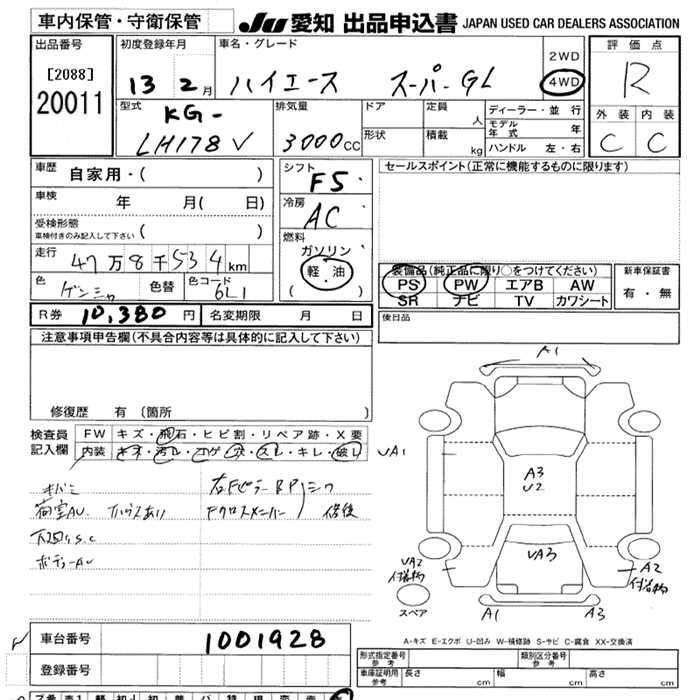 車内保管・守衛保管
JU 愛知 出品申込書 JAPAN USED CAR DEALERS ASSOCIATION
出品番号
[2088]
20011
初度登録年月
13 2月
車名・グレード
ハイエース スーパーGL
2WD
4WD
評価点
R
外装 内装
C C
型式
KG-
LH178V
排気量
3000cc
ドア
形状
定員 人
積載 kg
ディーラー・並行
モデル年式 年
ハンドル 左・右
車歴
自家用・( )
車検
年 月( 日)
受検形態
車検付きのみ記入して下さい ( )
走行
47万8千534km
色
ゲンシャ
色替
色コード
6L1
シフト
F5
冷房
AC
燃料
ガソリン
軽・油
( )
セールスポイント(正常に機能するものに限ります)
装備品(純正品に限り○をつけてください)
PS PW エアB AW
SR ナビ TV カワシート
新車保証書
有・無
R券 10,380円
名変期限 月 日
後日品
注意事項申告欄(不具合内容等は具体的に記入して下さい)
修復歴 有 〔箇所 〕
検査員
記入欄
FW キズ・飛石・ヒビ割・リペア跡・X要
内装 キズ・汚レ・コゲ・穴・スレ・キレ・破レ
キバミ
荷室AU. アハウスあり
下回りS.C
ボディーAU
右FピラーBP シワ
Fクロスメンバー 修後
A1
UA1
A3
U2
UA3
UA2
付着物
スペア
A1
A3
A2
付着物
A-キズ E-エクボ U-凹み W-補修跡 S-サビ C-腐食 XX-交換済
車台番号 1001928
登録番号
形式指定番号 参考
類別区分番号 参考
車庫証明用 参考
長さ cm
幅 cm
高さ cm